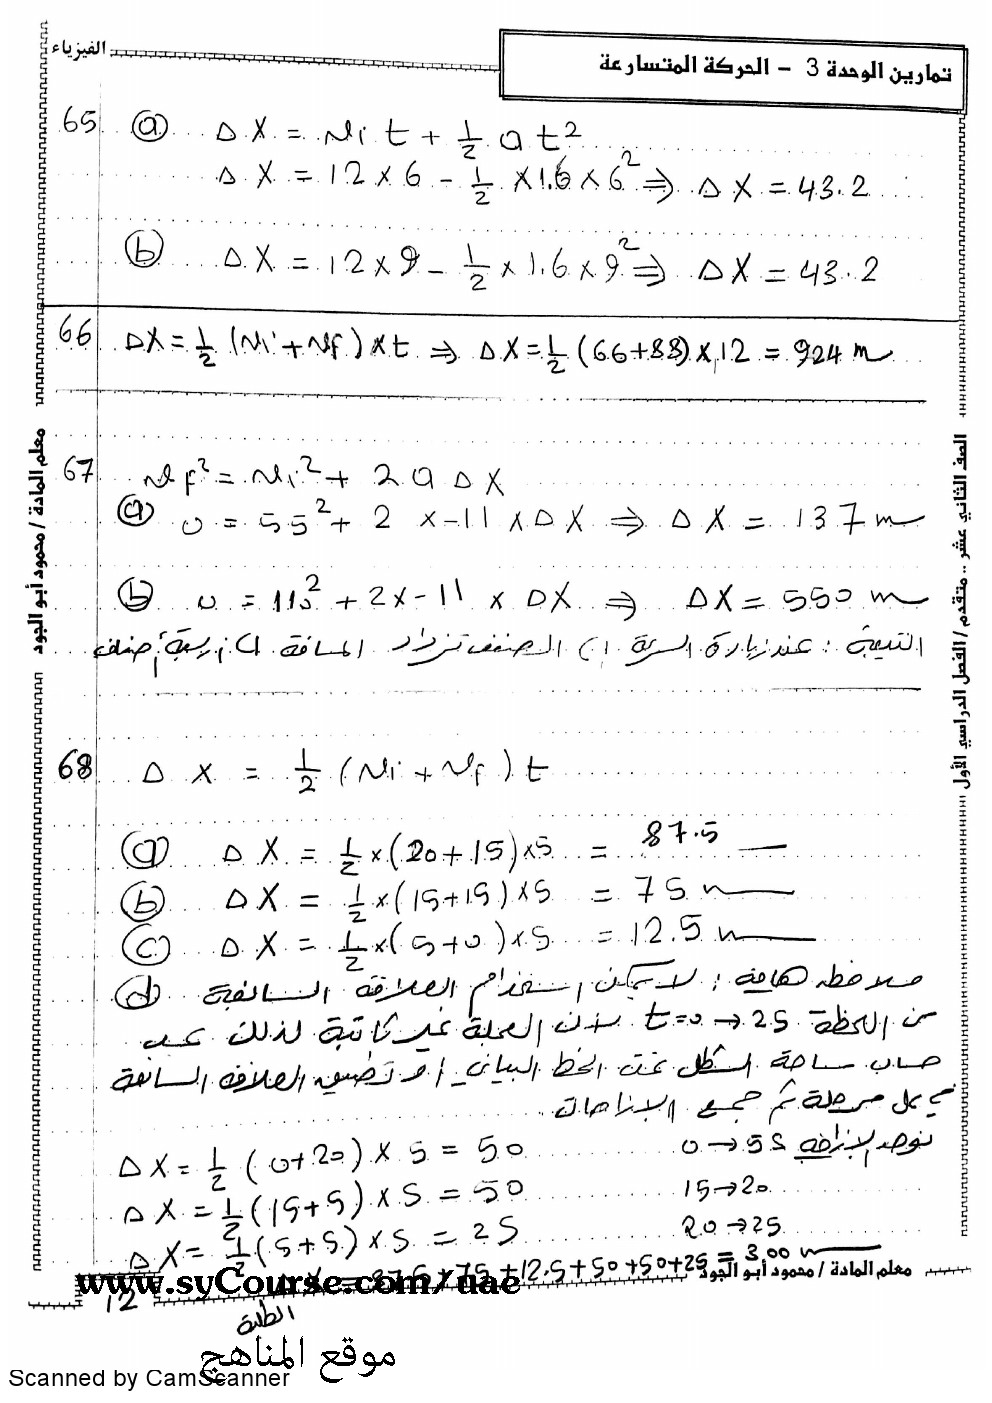 الفيزياء
تمارين الوحدة 3 - الحركة المتسارعة
65 (a) Δ X = vi t + 1/2 a t²
Δ X = 12 × 6 - 1/2 × 1.6 × 6² ⇒ Δ X = 43.2
(b) Δ X = 12 × 9 - 1/2 × 1.6 × 9² ⇒ Δ X = 43.2
66 ΔX = 1/2 (vi + vf) × t ⇒ ΔX = 1/2 (66+88) × 12 = 924 m
67 vf² = vi² + 2 a Δ X
(a) 0 = 55² + 2 × -11 × ΔX ⇒ Δ X = 137 m
(b) 0 = 110² + 2 × -11 × ΔX ⇒ ΔX = 550 m
النتيجة : عند زيادة السرعة إلى الضعف تزداد المسافة إلى أربعة أضعاف
68 Δ X = 1/2 (vi + vf) t
(a) Δ X = 1/2 × (20+15) × 5 = 87.5
(b) Δ X = 1/2 × (15+15) × 5 = 75 m
(c) Δ X = 1/2 × (5+0) × 5 = 12.5 m
(d) ملاحظة هامة : لا يمكن استخدام العلاقة السابقة
من اللحظة t=0 → 25 لأن العجلة غير ثابتة لذلك
حساب مساحة الشكل تحت الخط البياني أو تطبيق العلاقة السابقة
في كل مرحلة ثم جمع الإزاحات
نوجد الإزاحة 0 → 5s Δ X = 1/2 (0+20) × 5 = 50
15 → 20 Δ X = 1/2 (15+5) × 5 = 50
20 → 25 Δ X = 1/2 (5+5) × 5 = 25
= 87.5 + 75 + 12.5 + 50 + 50 + 25 = 300 m
معلم المادة / محمود أبو الجود
www.syCourse.com/uae
12
الطلبة
موقع المناهج
Scanned by CamScanner
معلم المادة / محمود أبو الجود
الصف الثاني عشر .. متقدم / الفصل الدراسي الأول